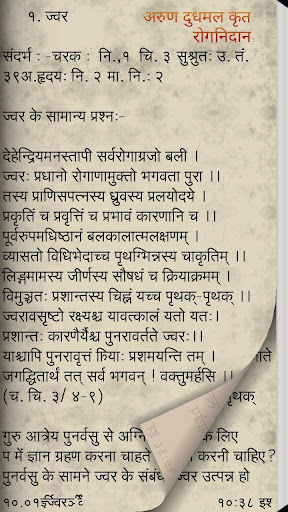 १. ज्वर
अरुण दुधमल कृत
रोगनिदान
संदर्भ : -चरक : नि.,१ चि. ३ सुश्रुतः उ. तं.
३९अ.हृदयः नि. २ मा. नि.: २
ज्वर के सामान्य प्रश्नः-
देहेन्द्रियमनस्तापी सर्वरोगाग्रजो बली ।
ज्वरः प्रधानो रोगाणामुक्तो भगवता पुरा ।।
तस्य प्राणिसपत्नस्य ध्रुवस्य प्रलयोदये ।
प्रकृतिं च प्रवृत्तिं च प्रभावं कारणानि च ।।
पूर्वरुपमधिष्ठानं बलकालात्मलक्षणम् ।
व्यासतो विधिभेदाच्च पृथग्भिन्नस्य चाकृतिम् ।
लिङ्गमामस्य जीर्णस्य सौषधं च क्रियाक्रमम् ।
विमुञ्चतः प्रशान्तस्य चिह्नं यच्च पृथक्-पृथक् ।।
ज्वरावसृष्टो रक्ष्यश्च यावत्कालं यतो यतः।
प्रशान्तः कारणैर्यैश्च पुनरावर्तते ज्वरः।।
याश्चापि पुनरावृत्तं क्रियाः प्रशमयन्ति तम् ।
जगद्धितार्थं तत् सर्व भगवन् ! वक्तुमर्हसि ।।
(च. चि. ३/ ४-९) पृथक्
गुरु आत्रेय पुनर्वसु से अग्नि के लिए
प में ज्ञान ग्रहण करना चाहते करनी चाहिए?
पुनर्वसु के सामने ज्वर के संबंध ज्वर उत्पन्न हो